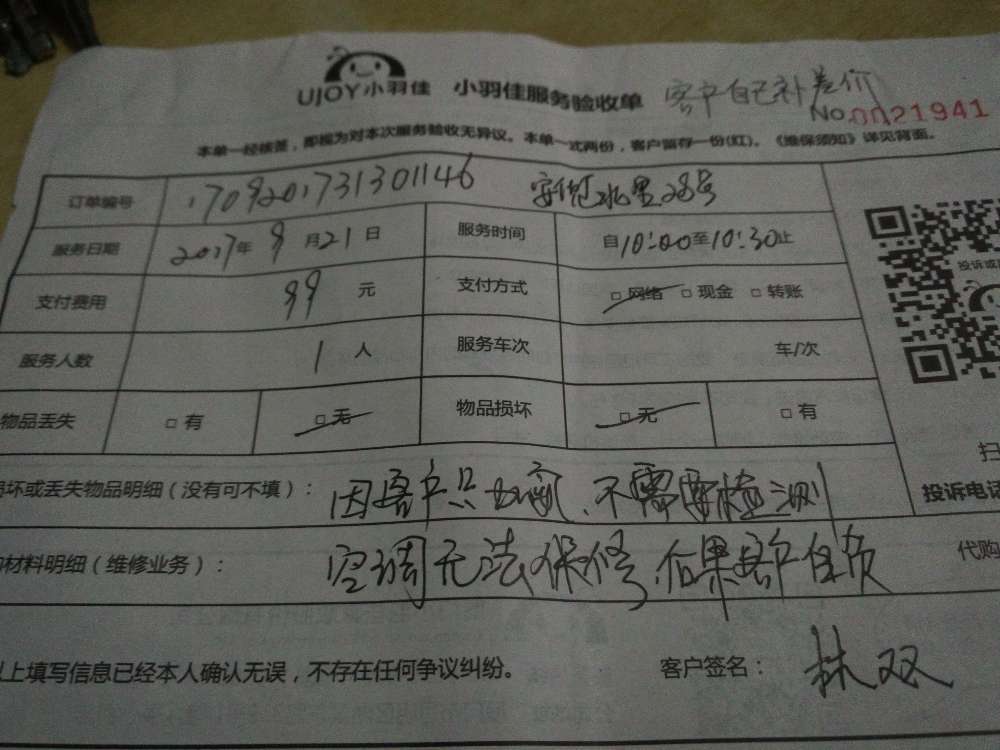 UJOY小羽佳 小羽佳服务验收单 客户自己补差价
No.0021941
本单一经核签，即视为对本次服务验收无异议。本单一式两份，客户留存一份(红)。《维保须知》详见背面。
订单编号 170920173130 1146 28号
服务日期 2017年 9月21日 服务时间 自10:00至10:30止
支付费用 99 元 支付方式 □网络 □现金 □转账
服务人数 1 人 服务车次 车/次
物品丢失 □有 □无 物品损坏 □无 □有
投诉或
坏或丢失物品明细（没有可不填）： 因客户只 不需要检测
扫
投诉电话
材料明细（维修业务）： 空调无法保修，后果客户自负
代购
上填写信息已经本人确认无误，不存在任何争议纠纷。 客户签名： 林双